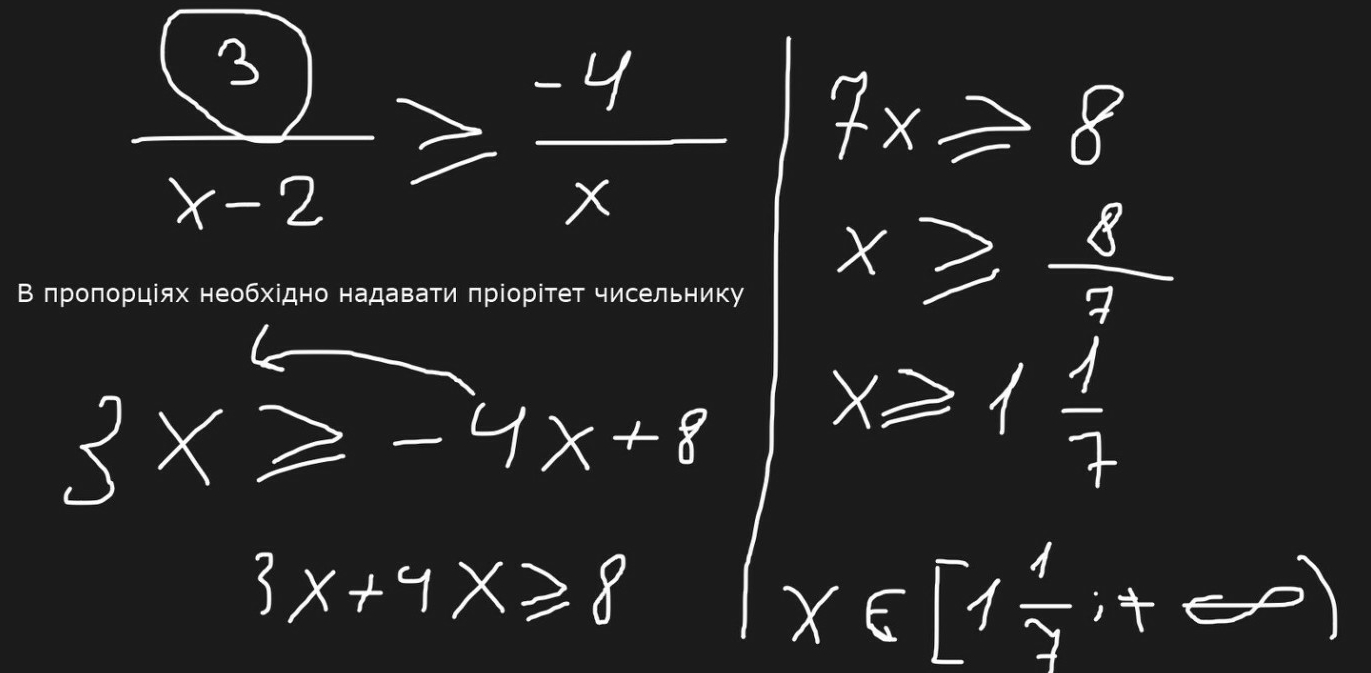 3/(x-2) ≥ -4/x
В пропорціях необхідно надавати пріорітет чисельнику
3x ≥ -4x+8
3x+4x ≥ 8
7x ≥ 8
x ≥ 8/7
x ≥ 1 1/7
x ∈ [1 1/7 ; +∞)